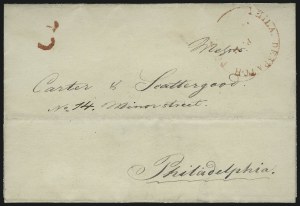 PHILA. DESPATCH P
Messrs
Carter & Scattergood
No. 14. Minor Street.
Philadelphia.